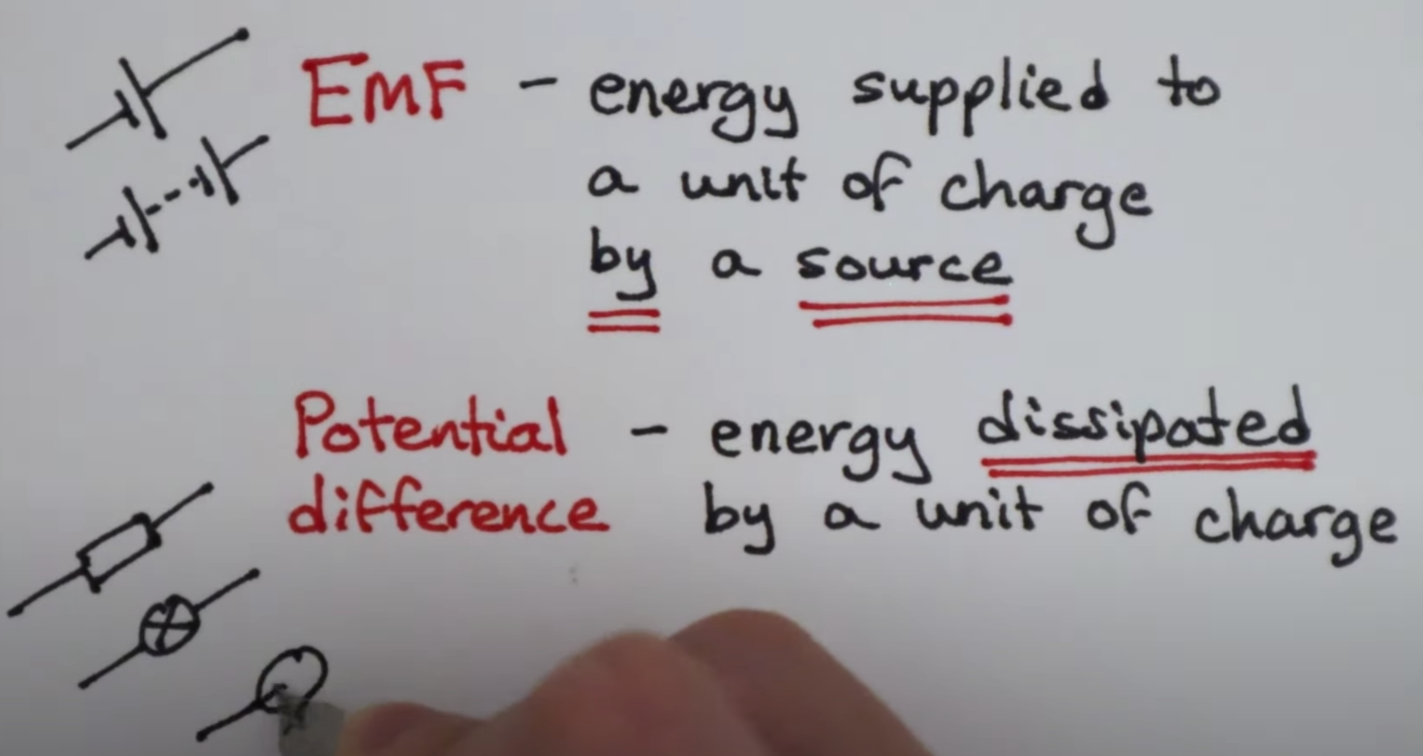 EMF - energy supplied to
a unit of charge
by a source
Potential - energy dissipated
difference by a unit of charge